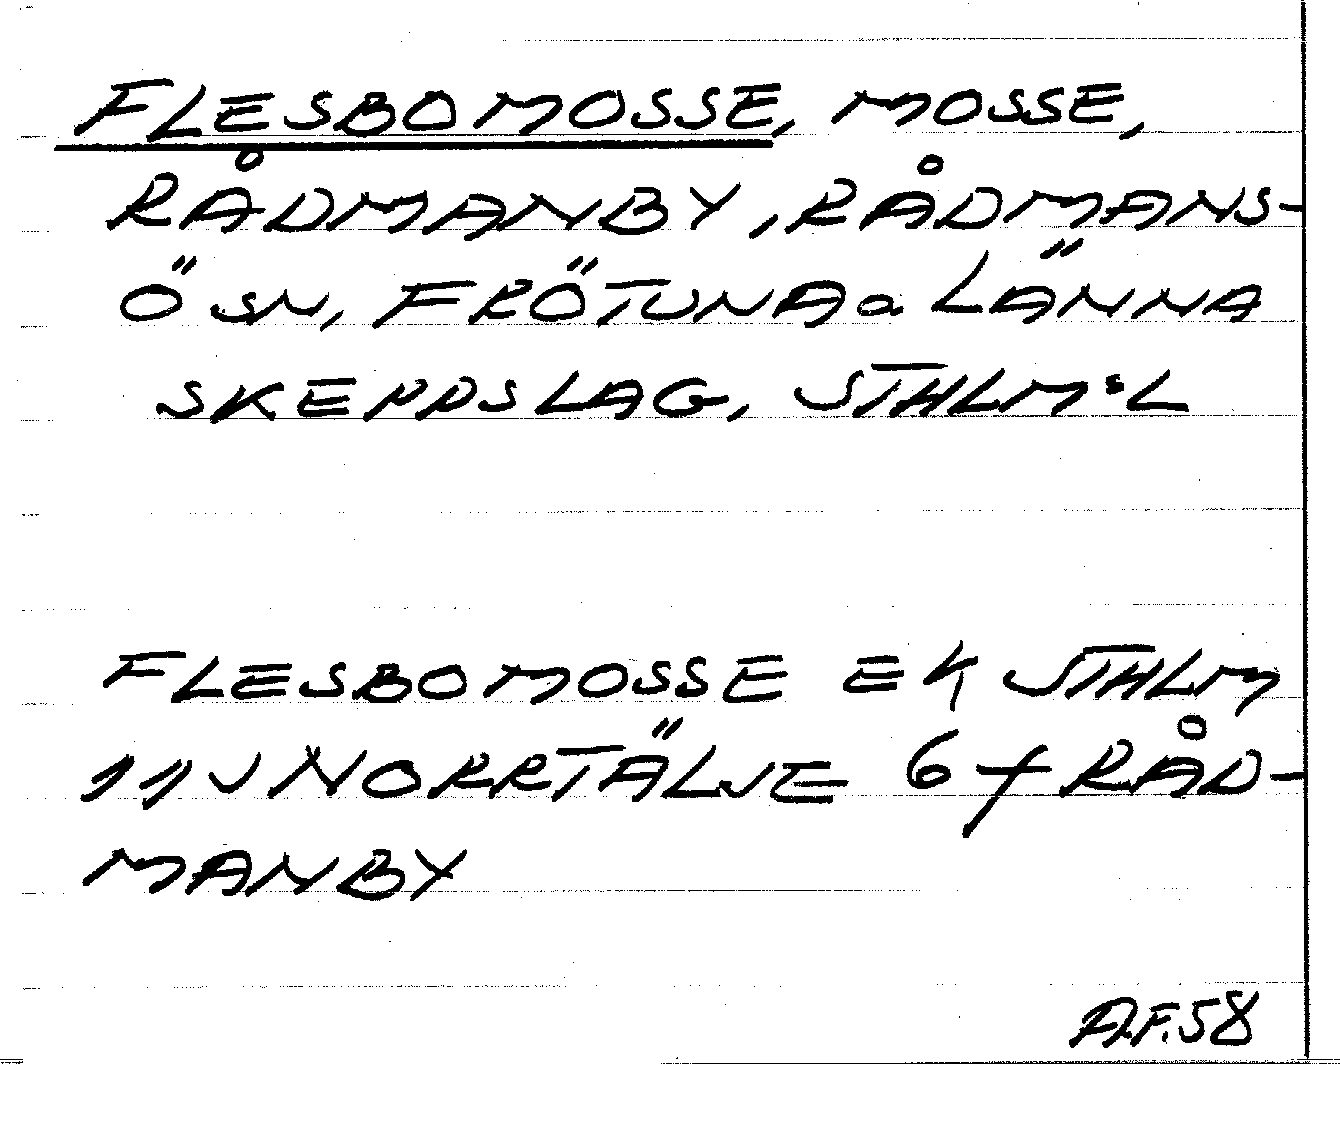 FLESBOMOSSE, MOSSE,
RÅDMANBY, RÅDMANS-
Ö SN, FRÖTUNA o LÄNNA
SKEPPSLAG, STHLMS L
FLESBOMOSSE EK STHLM
11 J NORRTÄLJE 6 f RÅD-
MANBY
A.F. 58